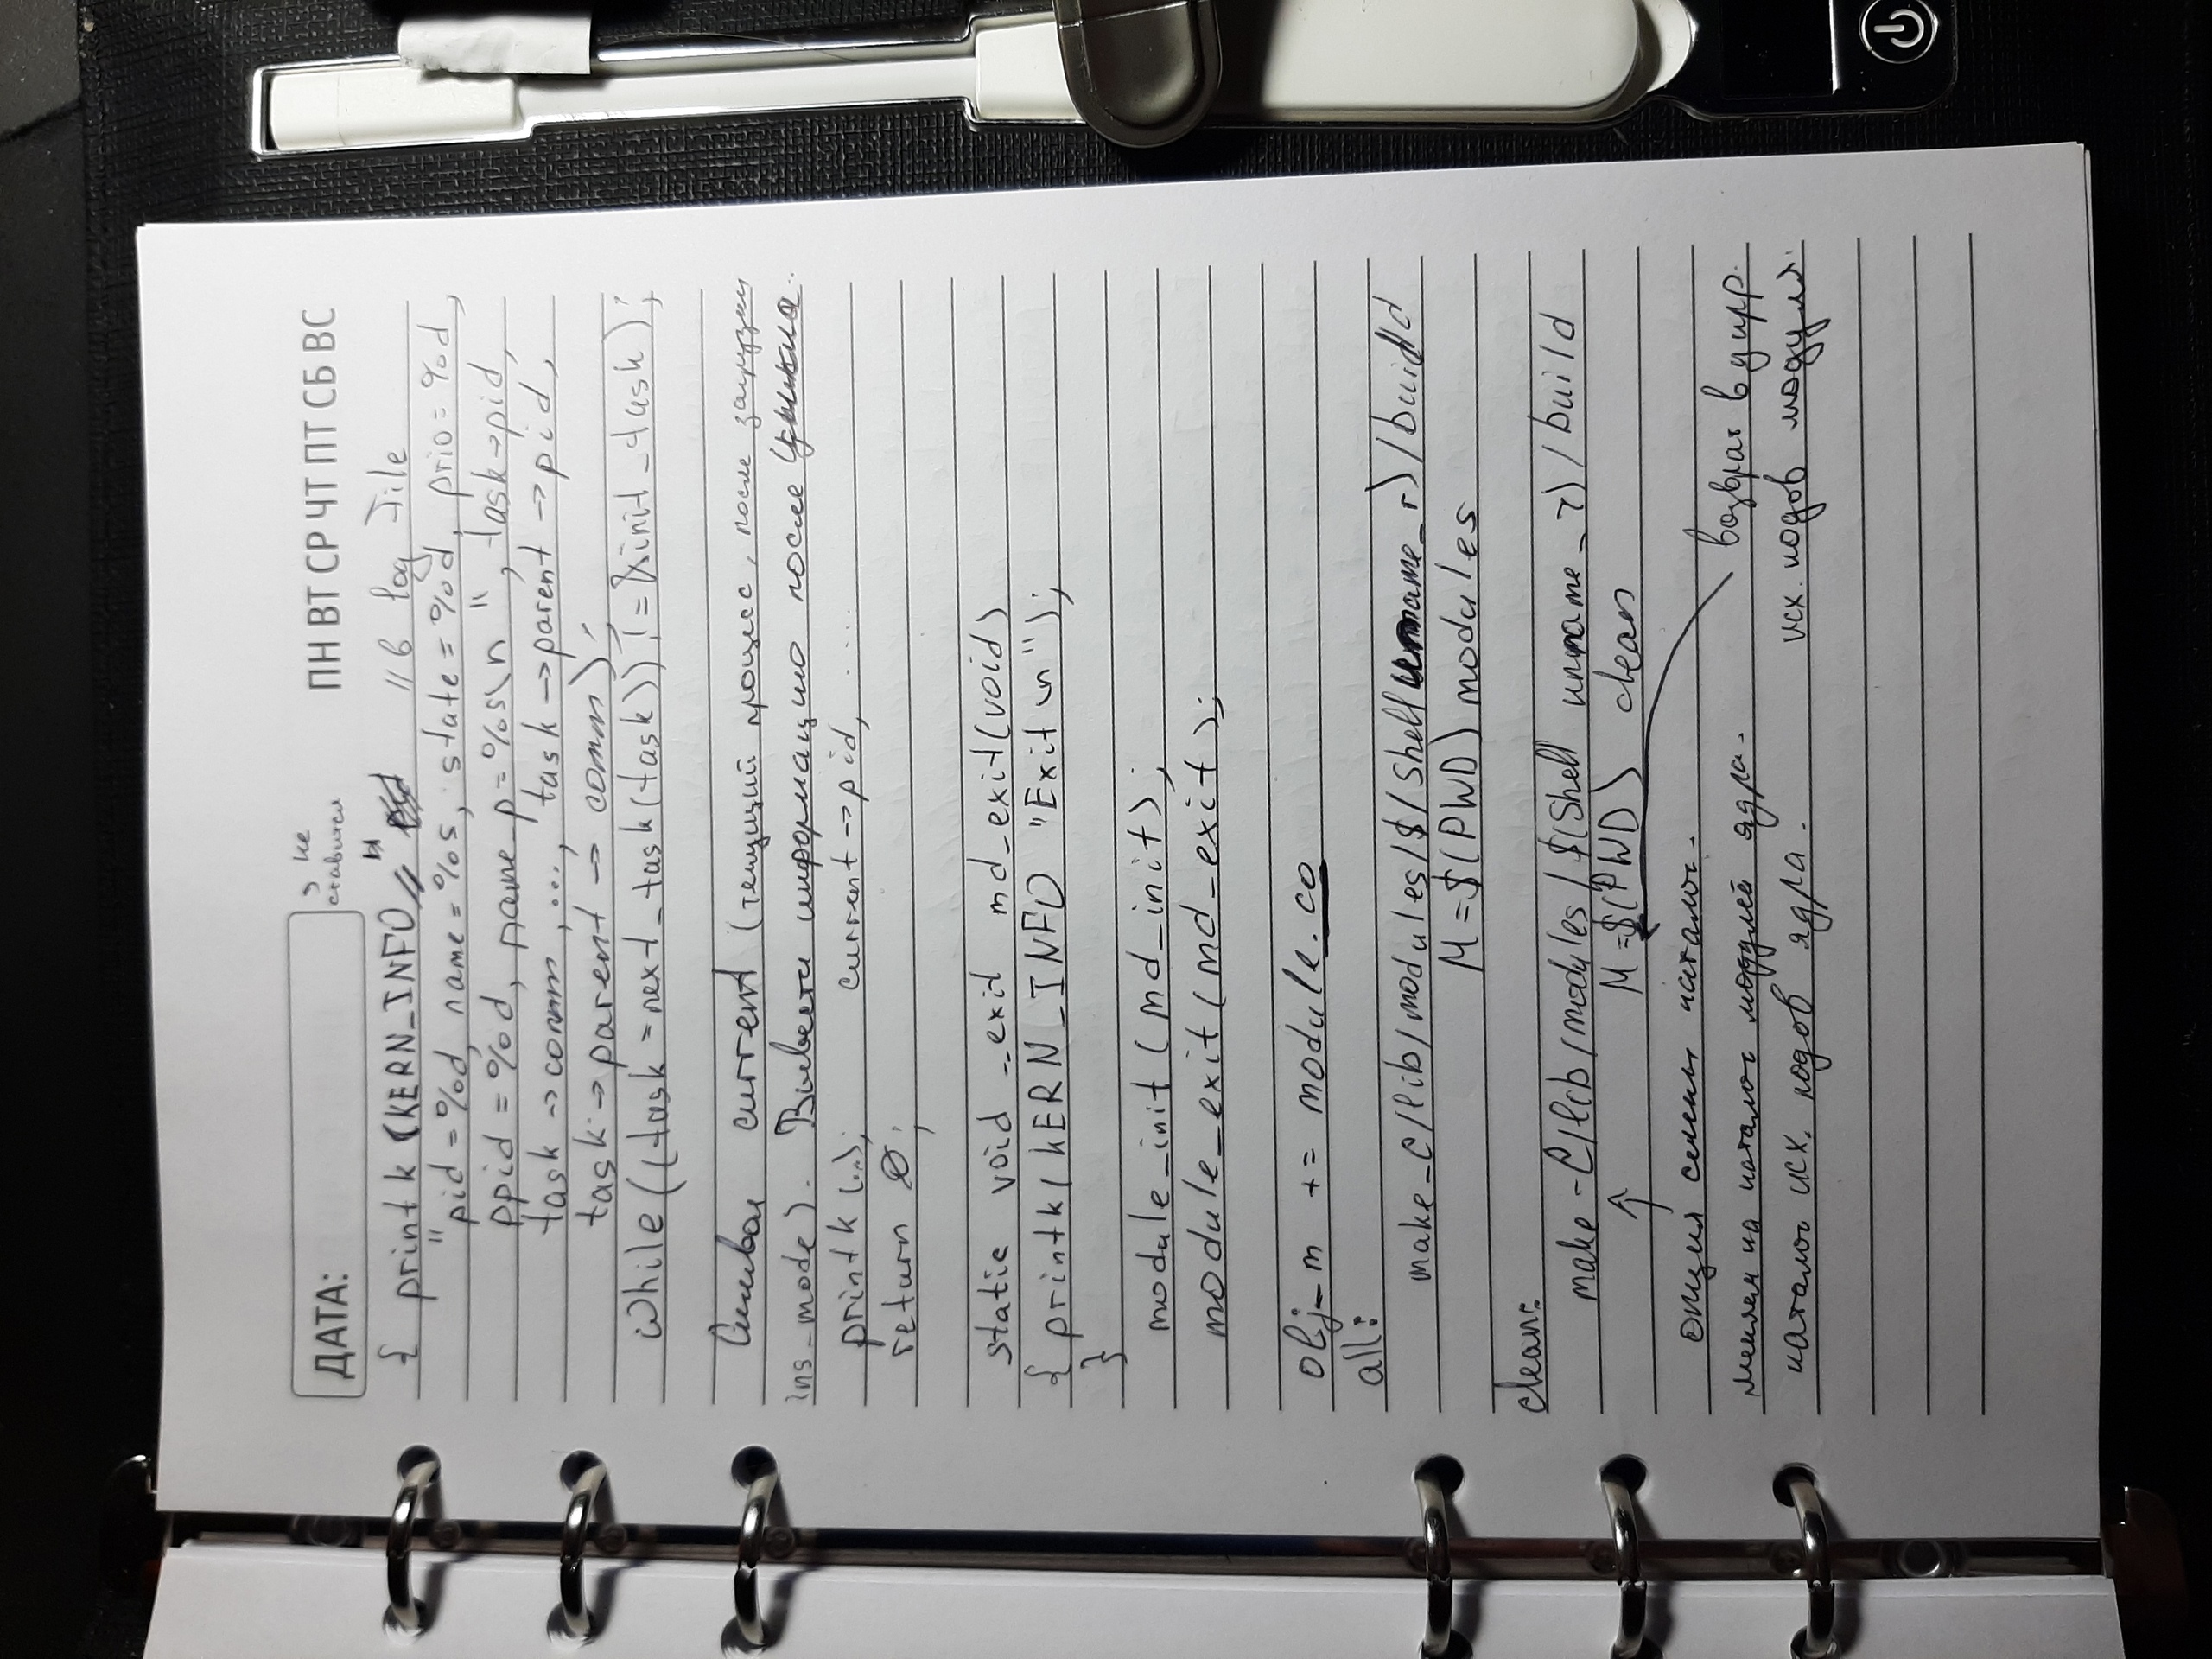 ДАТА:
ПН ВТ СР ЧТ ПТ СБ ВС
не
ставится
{ printk (KERN_INFO // // в log file
" pid = %d, name = %s, state = %d, prio = %d,
ppid = %d, name p = %s\n ", task->pid,
task -> comm, ..., task -> parent -> pid,
task -> parent -> comm);
while ((task = next_task (task)) != &init_task);
Символ current (текущий процесс, после загрузки
ins_mode). Вывести информацию после цикла.
printk (...); current -> pid, ....
return 0;
static void __exit md_exit (void)
{ printk (KERN_INFO "Exit \n");
}
module_init (md_init);
module_exit (md_exit);
obj-m += module.co
all:
make -C /lib/modules/$(shell uname -r)/build
M=$(PWD) modules
clean:
make -C /lib/modules/$(shell uname -r)/build
M=$(PWD) clean
опция смены каталог.
меняем на каталог модулей ядра.
каталог исх. кодов ядра.
возврат в дир.
исх. кодов модуля.